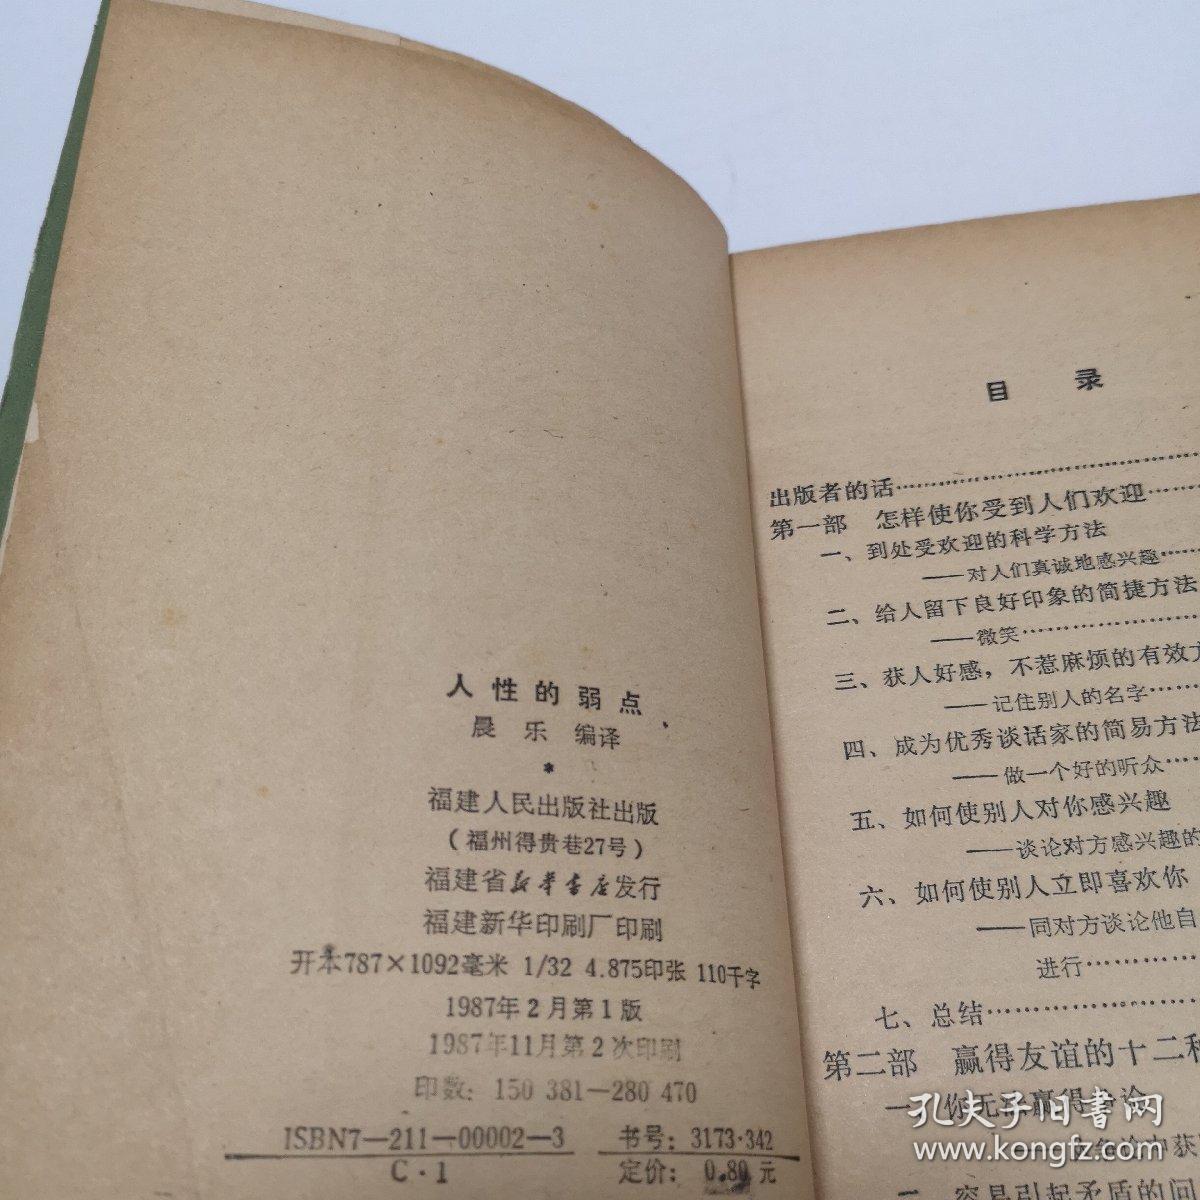 人性的弱点
晨乐 编译
*
福建人民出版社出版
(福州得贵巷27号)
福建省新华书店发行
福建新华印刷厂印刷
开本787×1092毫米 1/32 4.875印张 110千字
1987年2月第1版
1987年11月第2次印刷
印数：150 381—280 470
ISBN7—211—00002—3
C·1
书号：3173·342
定价：0.80元
目 录
出版者的话……
第一部 怎样使你受到人们欢迎……
一、到处受欢迎的科学方法
——对人们真诚地感兴趣……
二、给人留下良好印象的简捷方法
——微笑……
三、获人好感，不惹麻烦的有效方
——记住别人的名字……
四、成为优秀谈话家的简易方法
——做一个好的听众……
五、如何使别人对你感兴趣
——谈论对方感兴趣的
六、如何使别人立即喜欢你
——同对方谈论他自
进行……
七、总结……
第二部 赢得友谊的十二种
一、你无法赢得争论
获
二、容易引起矛盾的问
孔夫子旧书网
www.kongfz.com